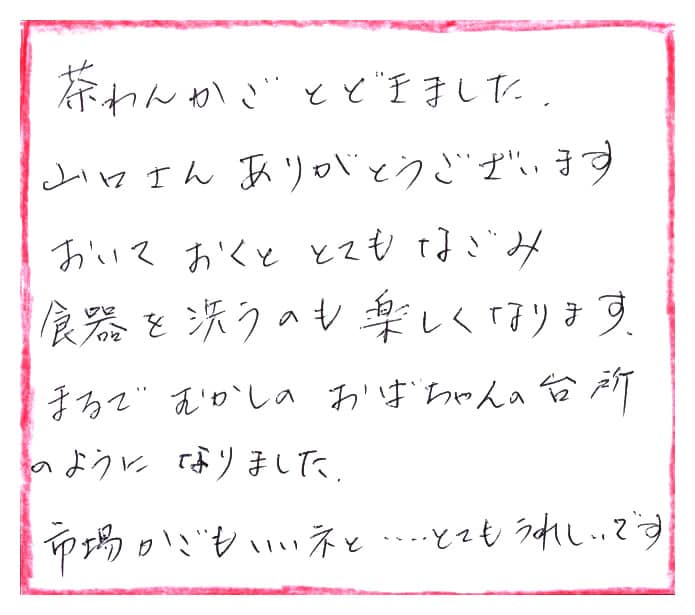 茶わんかご とどきました.
山口さん ありがとうございます
おいて おくと とても なごみ
食器を洗うのも楽しくなります.
まるで むかしの おばちゃんの台所
のように なりました.
市場かごもいいネと ‥‥とてもうれしいです